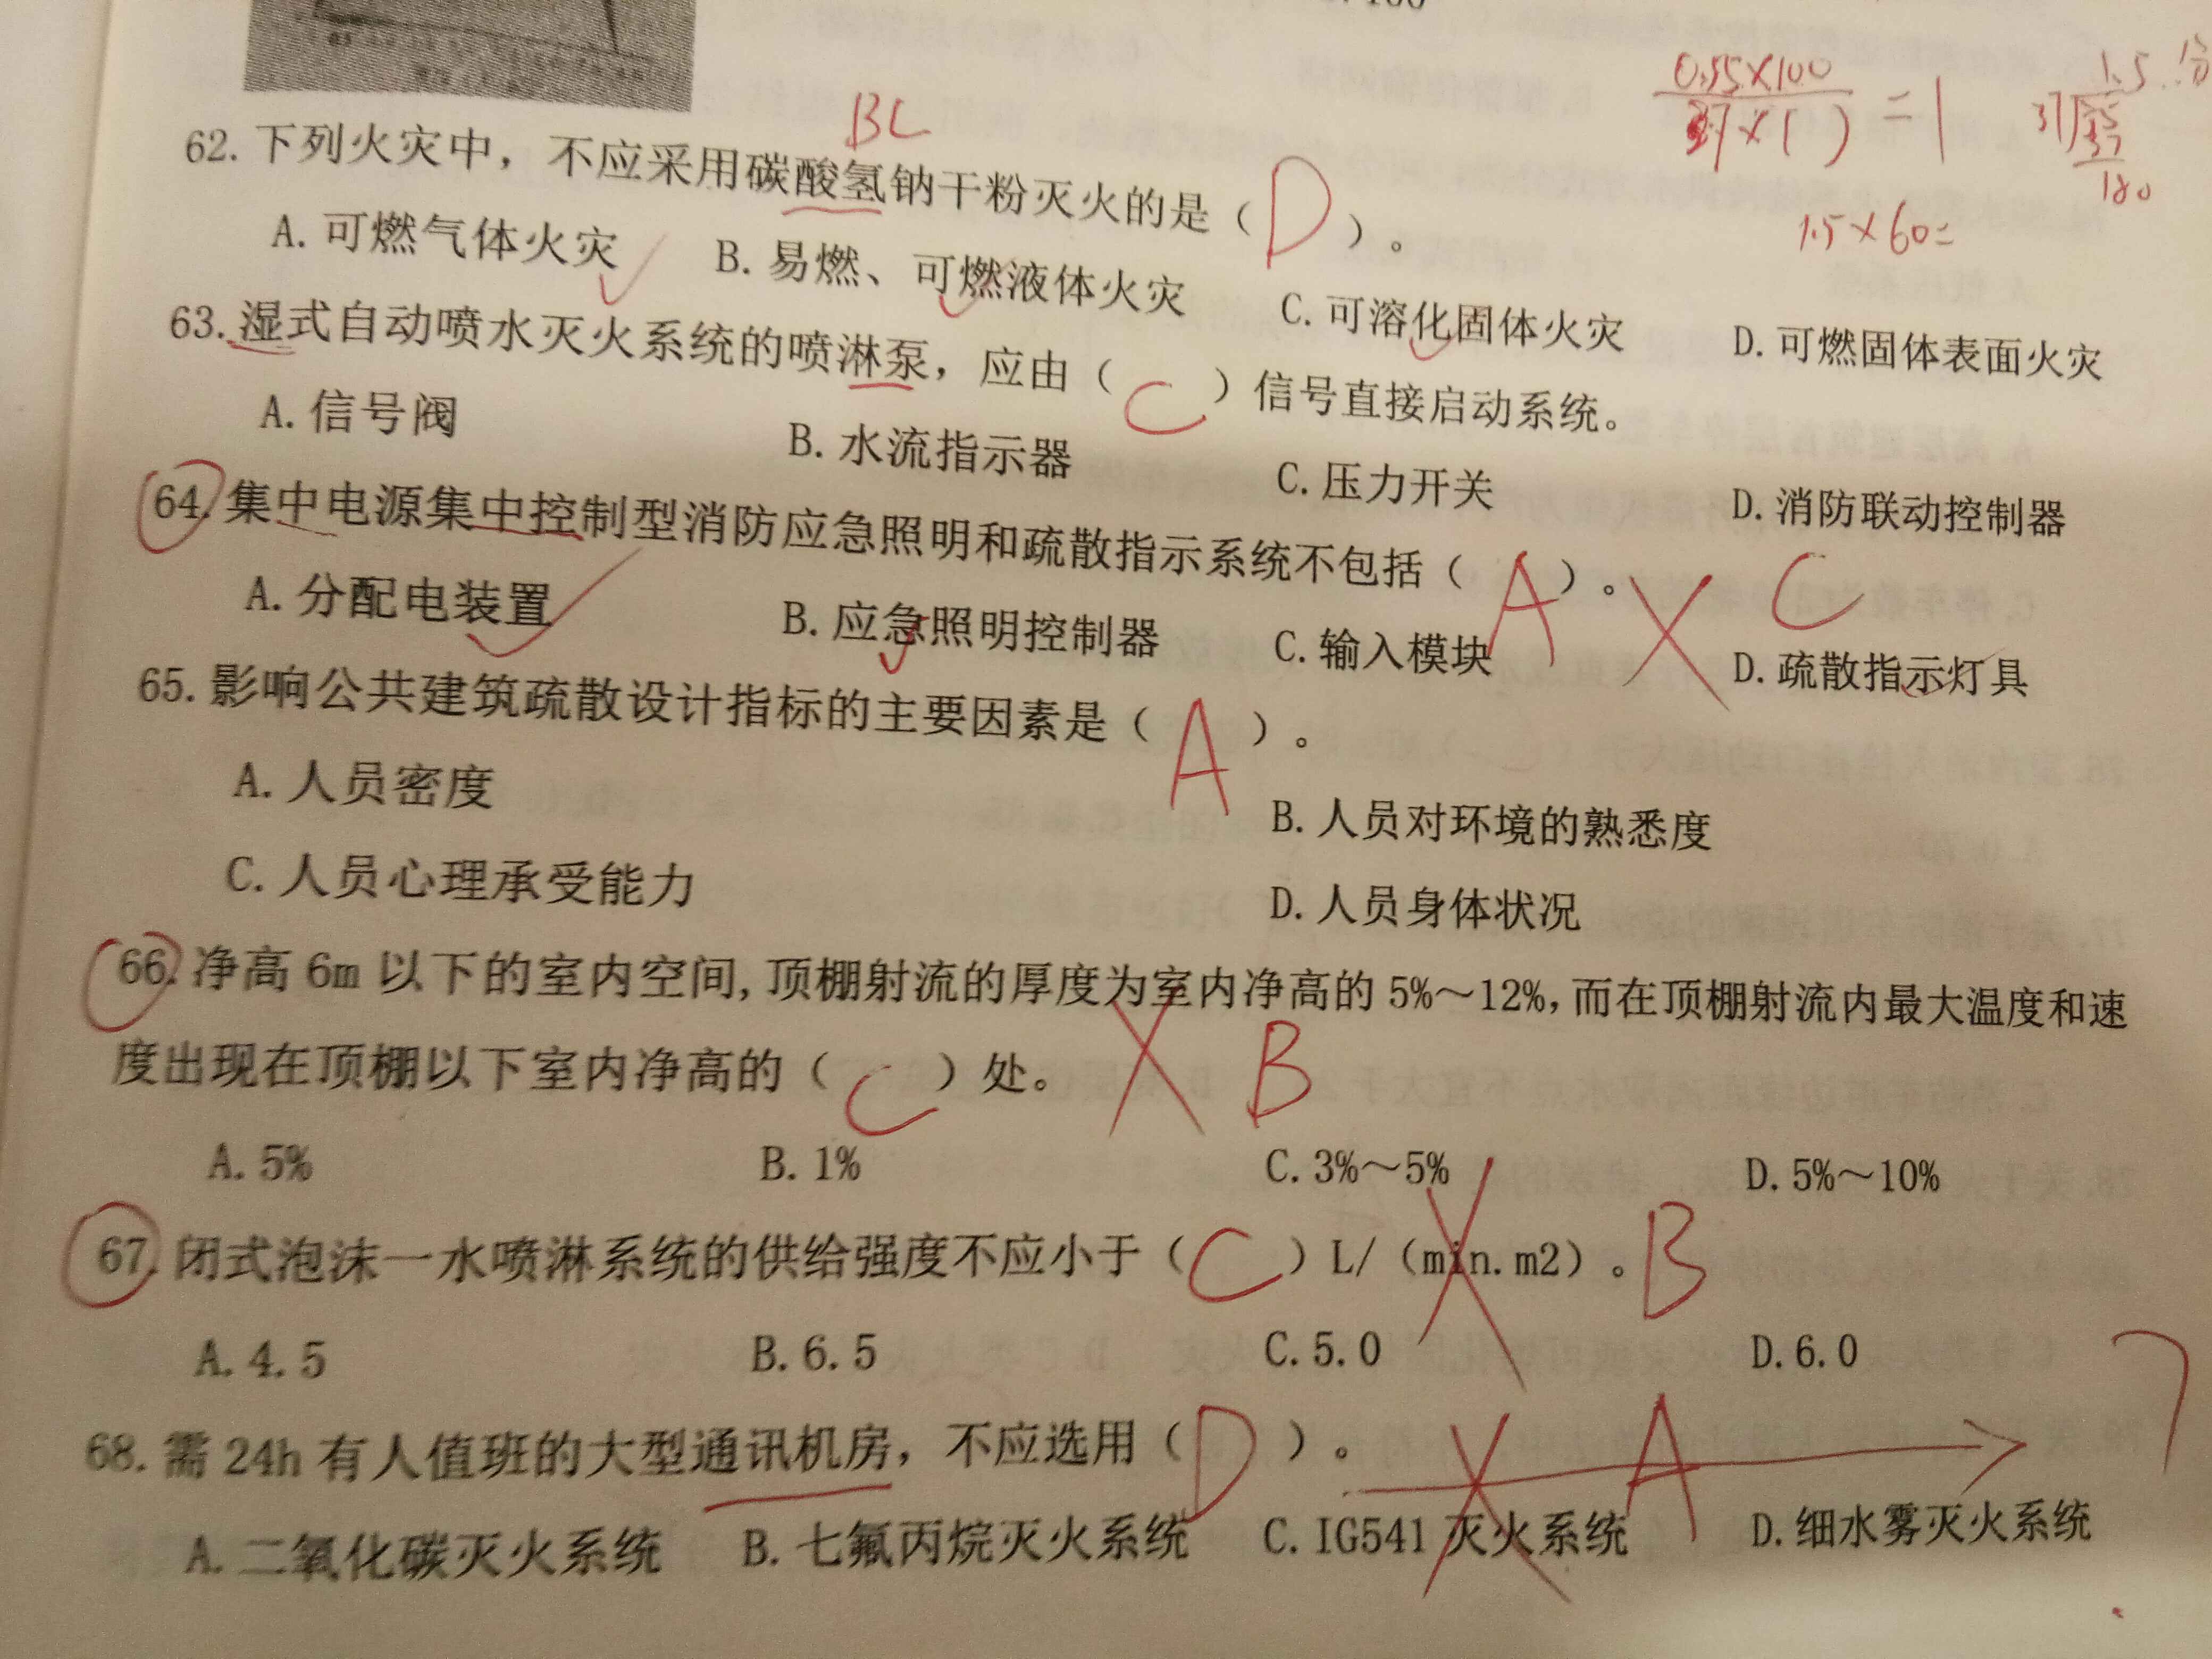 0.55×100
37×( ) =1
1.5分
37
55
37
180
1.5×60=
BC
62.下列火灾中，不应采用碳酸氢钠干粉灭火的是（D）。
A.可燃气体火灾 B.易燃、可燃液体火灾 C.可溶化固体火灾 D.可燃固体表面火灾
63.湿式自动喷水灭火系统的喷淋泵，应由（C）信号直接启动系统。
A.信号阀 B.水流指示器 C.压力开关 D.消防联动控制器
64.集中电源集中控制型消防应急照明和疏散指示系统不包括（A）。 C
A.分配电装置 B.应急照明控制器 C.输入模块 D.疏散指示灯具
65.影响公共建筑疏散设计指标的主要因素是（A）。
A.人员密度 B.人员对环境的熟悉度
C.人员心理承受能力 D.人员身体状况
66.净高6m以下的室内空间,顶棚射流的厚度为室内净高的5%～12%,而在顶棚射流内最大温度和速
度出现在顶棚以下室内净高的（C）处。 B
A.5% B.1% C.3%～5% D.5%～10%
67.闭式泡沫一水喷淋系统的供给强度不应小于（C）L/（min.m2）。B
A.4.5 B.6.5 C.5.0 D.6.0
68.需24h有人值班的大型通讯机房，不应选用（D）。 A
A.二氧化碳灭火系统 B.七氟丙烷灭火系统 C.IG541灭火系统 D.细水雾灭火系统